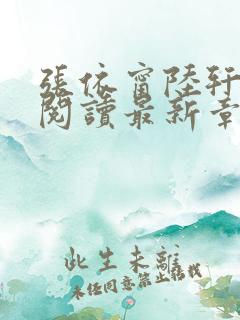 張依甯陸軒
閱讀最新章
此生未離
未經同意禁止搭我